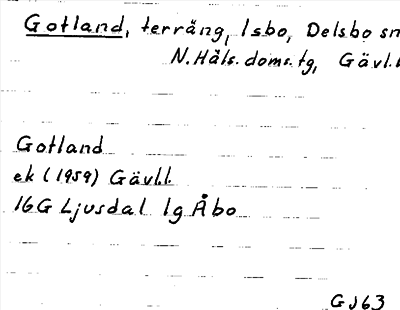 Gotland, terräng, Isbo, Delsbo sn
N.Häls.doms.tg, Gävl.l
Gotland
ek (1959) Gävl.l.
16G Ljusdal 1g Åbo
GJ63